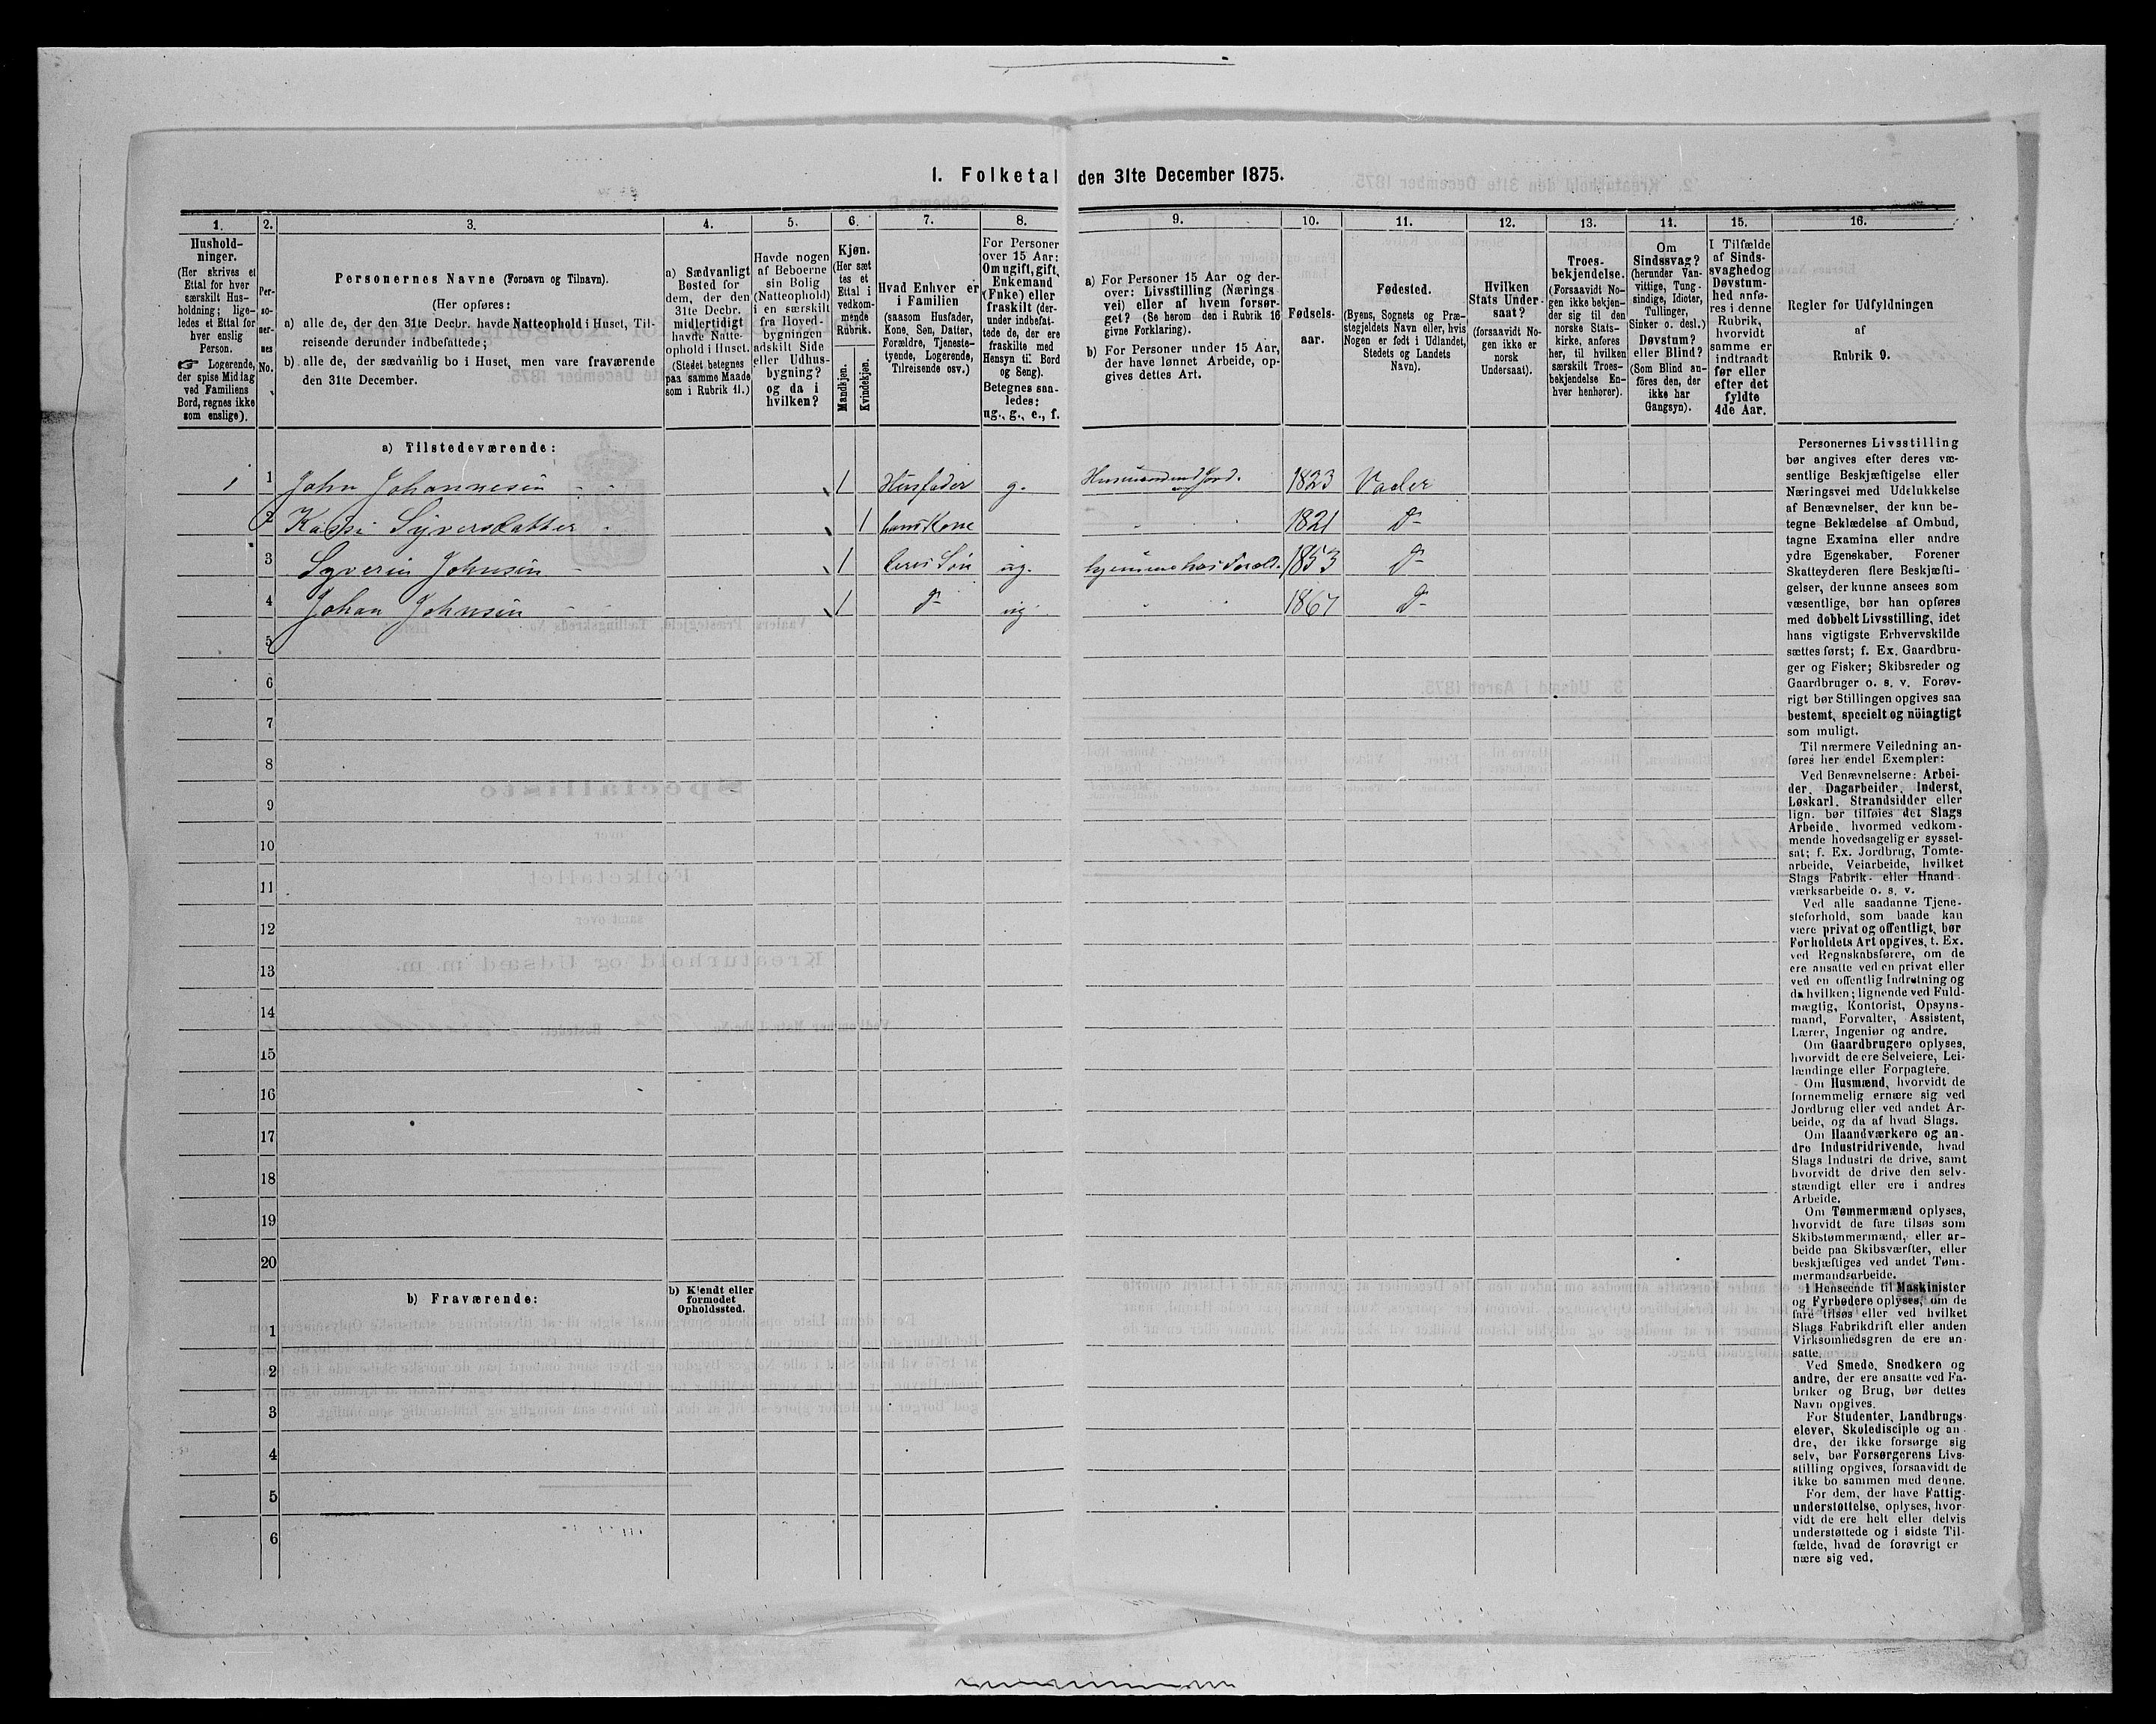 1. Folketal den 31te December 1875.
1.
Hushold-
ninger.
(Her skrives et
Ettal for hver
særskilt Hus-
holdning; lige-
ledes et Ettal for
hver enslig
Person.
☞ Logerende,
der spise Middag
ved Familiens
Bord, regnes ikke
som enslige).
2.
Per-
so-
ner-
nes
No.
3.
Personernes Navne (Fornavn og Tilnavn).
(Her opføres:
a) alle de, der den 31te Decbr. havde Natteophold i Huset, Til-
reisende derunder indbefattede;
b) alle de, der sædvanlig bo i Huset, men vare fraværende
den 31te December.
4.
a) Sædvanligt
Bosted for
dem, der den
31te Decbr.
midlertidigt
havde Natte-
ophold i Huset.
(Stedet betegnes
paa samme Maade
som i Rubrik 11.)
5.
Havde nogen
af Beboerne
sin Bolig
(Natteophold)
i en særskilt
fra Hoved-
bygningen
adskilt Side
eller Udhus-
bygning?
og da i
hvilken?
6.
Kjøn.
(Her sæt
tes et
Ettal i
vedkom-
mende
Rubrik.
Mandkjøn.
Kvindekjøn.
7.
Hvad Enhver er
i Familien
(saasom Husfader,
Kone, Søn, Datter,
Forældre, Tjeneste-
tyende, Logerende,
Tilreisende osv.)
8.
For Personer
over 15 Aar:
Om ugift, gift,
Enkemand
(Enke) eller
fraskilt (der-
under indbefat-
tede de, der ere
fraskilte med
Hensyn til Bord
og Seng).
Betegnes saa-
ledes:
ug., g., e., f.
9.
a) For Personer 15 Aar og der-
over: Livsstilling (Nærings
vei) eller af hvem forsør-
get? (Se herom den i Rubrik 16
givne Forklaring).
b) For Personer under 15 Aar,
der have lønnet Arbeide, op-
gives dettes Art.
10.
Fødsels-
aar.
11.
Fødested.
(Byens, Sognets og Præ-
stegjeldets Navn eller, hvis
Nogen er født i Udlandet,
Stedets og Landets
Navn).
12.
Hvilken
Stats Under-
saat?
(forsaavidt No-
gen ikke er
norsk
Undersaat).
13.
Troes-
bekjendelse.
(Forsaavidt No-
gen ikke bekjen-
der sig til den
norske Stats-
kirke, anføres
her, til hvilken
særskilt Troes-
bekjendelse En-
hver henhører).
14.
Om
Sindssvag?
(herunder Van-
vittige, Tung-
sindige, Idioter,
Tullinger,
Sinker o. desl.)
Døvstum?
eller Blind?
(Som Blind an-
føres den, der
ikke har
Gangsyn).
15.
I Tilfælde
af Sinds-
svaghed og
Døvstum-
hed anfø-
res i denne
Rubrik,
hvorvidt
samme er
indtraadt
før eller
efter det
fyldte
4de Aar.
16.
Regler for Udfyldningen
af
Rubrik 9.
a) Tilstedeværende:
1 1 John Johannesen 1 Husfader g. Husmand med Jord. 1823 Vaaler
2 Kassi Syversdatter 1 hans Kone 1821 Do
3 Syverin Johnsen 1 deres Søn ug. hjemme hos Foræld. 1853 Do
4 Johan Johnsen 1 Do ug. 1867 Do
5
6
7
8
9
10
11
12
13
14
15
16
17
18
19
20
b) Fraværende:
b) Kjendt eller
formodet
Opholdssted.
1
2
3
4
5
6
Personernes Livsstilling
bør angives efter deres væ-
sentlige Beskjæftigelse eller
Næringsvei med Udelukkelse
af Benævnelser, der kun be-
tegne Beklædelse af Ombud,
tagne Examina eller andre
ydre Egenskaber. Forener
Skatteyderen flere Beskjæfti-
gelser, der kunne ansees som
væsentlige, bør han opføres
med dobbelt Livsstilling, idet
hans vigtigste Erhvervskilde
sættes først; f. Ex. Gaardbru-
ger og Fisker; Skibsreder og
Gaardbruger o. s. v. Forøv-
rigt bør Stillingen opgives saa
bestemt, specielt og nöiagtigt
som muligt.
Til nærmere Veiledning an-
føres her endel Exempler:
Ved Benævnelserne: Arbei-
der, Dagarbeider, Inderst,
Løskarl, Strandsidder eller
lign. bør tilføies det Slags
Arbeide, hvormed vedkom-
mende hovedsagelig er syssel-
sat; f. Ex. Jordbrug, Tomte-
arbeide, Veiarbeide, hvilket
Slags Fabrik- eller Haand-
værksarbeide o. s. v.
Ved alle saadanne Tjene-
steforhold, som baade kan
være privat og offentligt, bør
Forholdets Art opgives, t. Ex.
ved Regnskabsførere, om de
ere ansatte ved en privat eller
ved en offentlig Indretning og
da hvilken; lignende ved Fuld-
mægtig, Kontorist, Opsyns-
mand, Forvalter, Assistent,
Lærer, Ingeniør og andre.
Om Gaardbrugere oplyses,
hvorvidt de ere Selveiere, Lei-
lændinge eller Forpagtere.
Om Husmænd, hvorvidt de
fornemmelig ernære sig ved
Jordbrug eller ved andet Ar-
beide, og da af hvad Slags.
Om Haandværkere og an-
dre Industridrivende, hvad
Slags Industri de drive, samt
hvorvidt de drive den selv-
stændigt eller ere i andres
Arbeide.
Om Tømmermænd oplyses,
hvorvidt de fare tilsøs som
Skibstømmermænd, eller ar-
beide paa Skibsværfter, eller
beskjæftiges ved andet Tøm-
mermandsarbeide.
I Henseende til Maskinister
og Fyrbødere oplyses, om de
fare tilsøs eller ved hvilket
Slags Fabrikdrift eller anden
Virksomhedsgren de ere an-
satte.
Ved Smede, Snedkere og
andre, der ere ansatte ved Fa-
briker og Brug, bør dettes
Navn opgives.
For Studenter, Landbrugs-
elever, Skoledisciple og an-
dre, der ikke forsørge sig
selv, bør Forsørgerens Livs-
stilling opgives, forsaavidt de
ikke bo sammen med denne.
For dem, der have Fattig-
understøttelse, oplyses, hvor-
vidt de ere helt eller delvis
understøttede og i sidste Til-
fælde, hvad de forøvrigt er
nære sig ved.